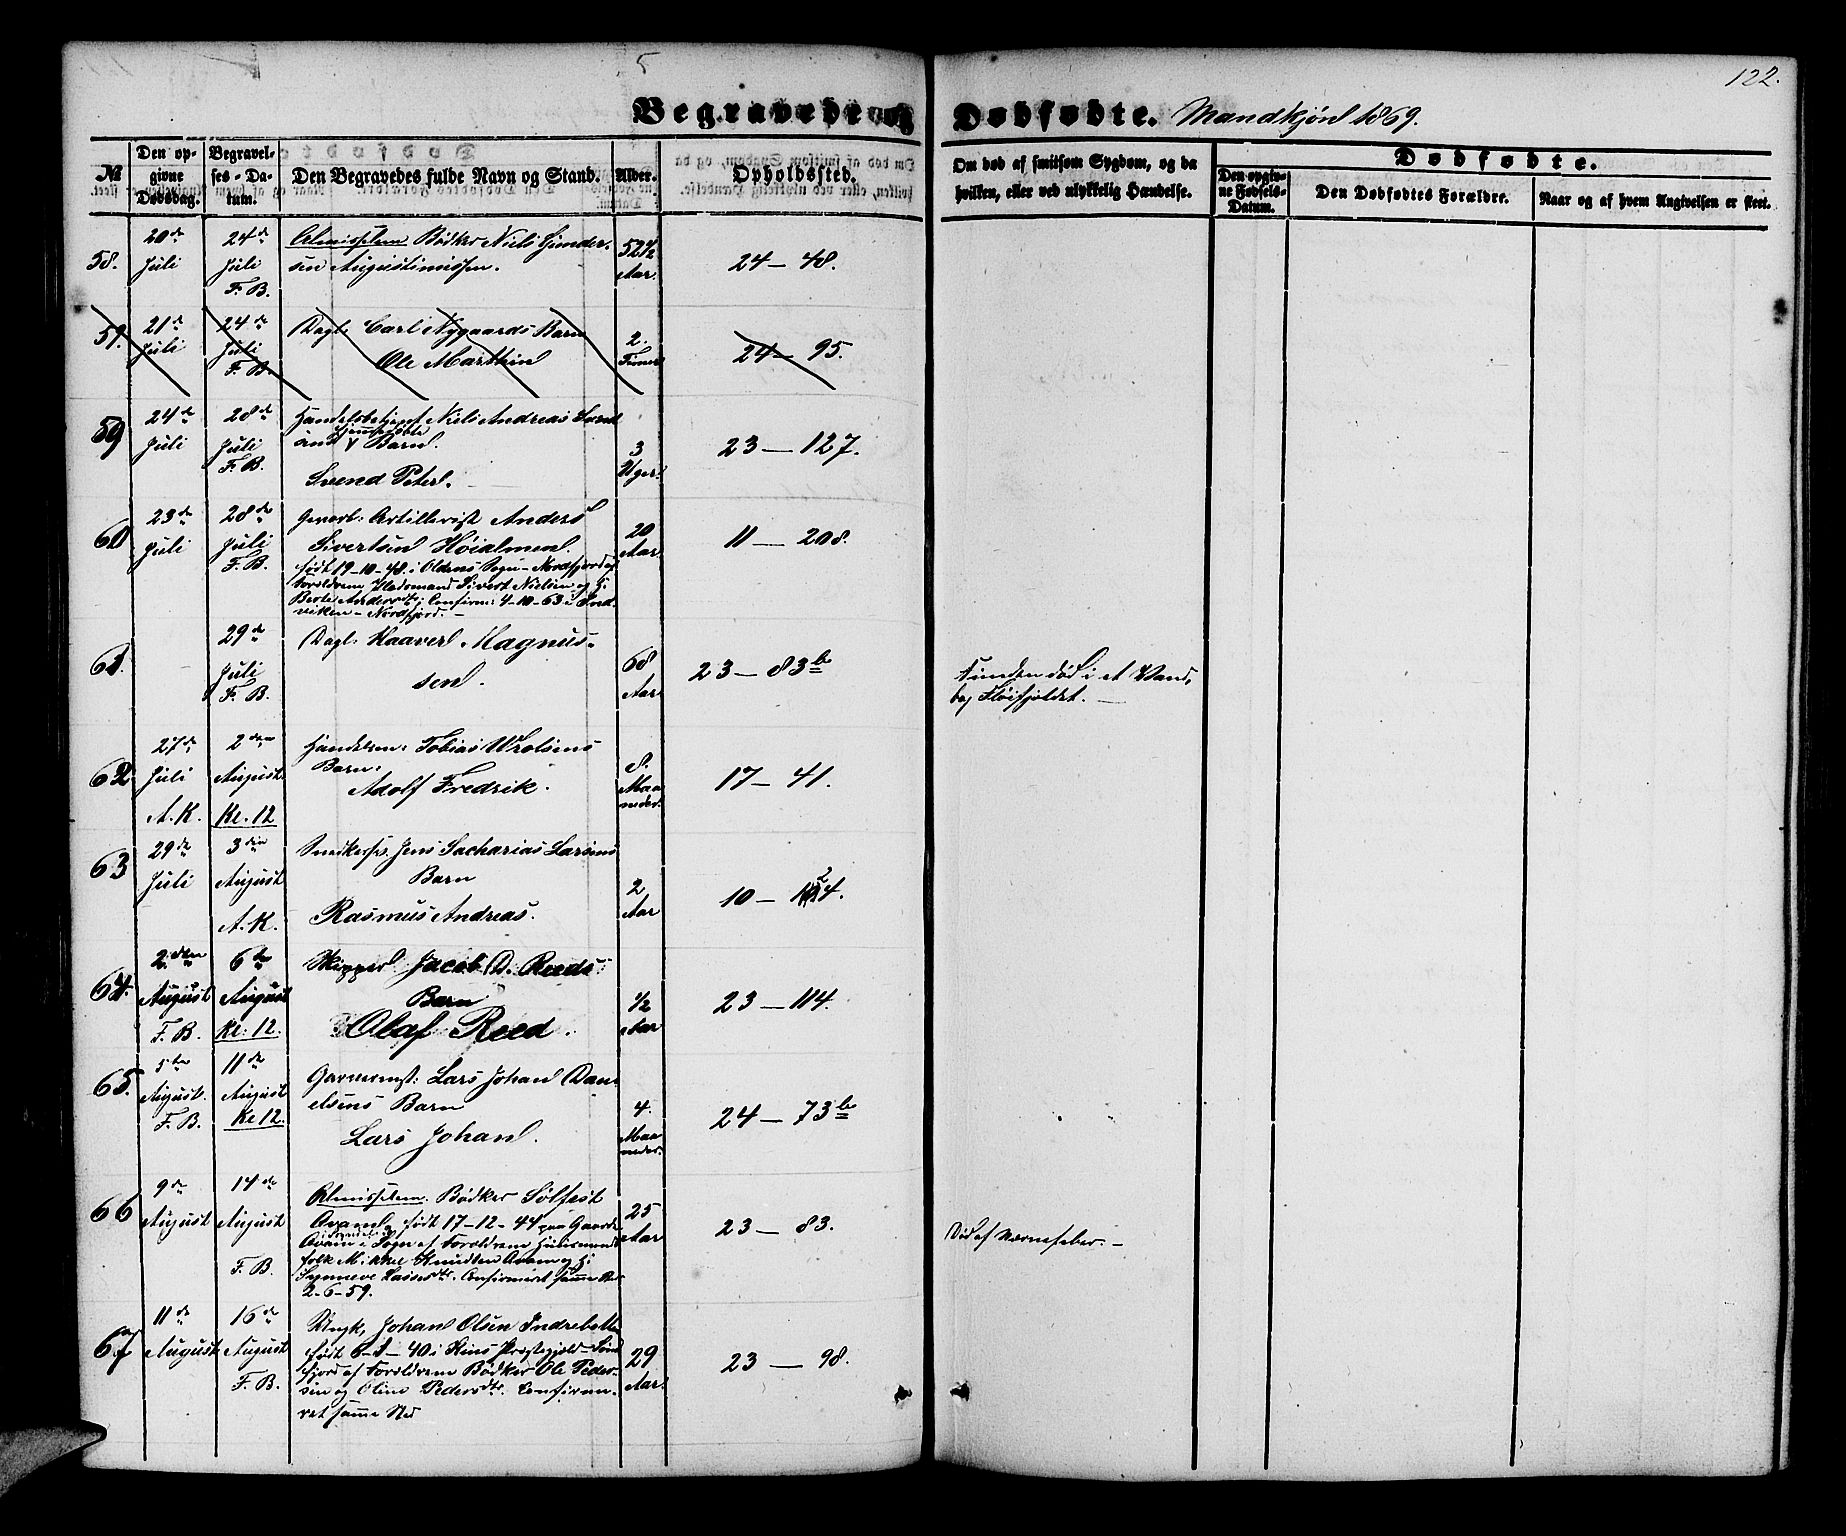 5
122.
Begravede og Dødfødte. Mandkjøn 1869.
№
Den op-
givne
Dødsdag.
Begravel-
ses-Da-
tum.
Den Begravedes fulde Navn og Stand.
Alder.
Opholdssted.
Om død af smitsom Sygdom, og da
hvilken, eller ved ulykkelig Hændelse.
Dødfødte.
Den opgiv-
ne Fødsels-
Datum.
Den Dødfødtes Forældre.
Naar og af hvem Angivelsen er skeet.
58.
20de
Juli
24de
Juli
F. B.
Almisselem Bødker Niels Gunder-
sen Augustinussen.
52½
Aar.
24 — 48.
59.
21de
Juli
24de
Juli
F. B.
Dagl: Carl Nygaards Barn
Ole Marthin
2.
Timer
24 — 95.
59
24de
Juli
28de
Juli
F. B.
Handelsbetjent Niels Andreas
hjemmedøbte
Barn.
Svend Peter.
3
Uger.
23 — 127.
60
23de
Juli
28de
Juli
F. B.
Gevorb: Artillerist Anders
Sivertsen Høialmen.
født 19-10-48. i Oldens Sogn - Nordfjord af
Forældrene Pladsmand Sivert Nielsen og H:
Berte Andersdtr; Confirm: 4-10-63 i
viken - Nordfjord. -
20
Aar.
11 — 208.
61.
29de
Juli
F. B.
Dagl: Kaaver Magnus-
sen.
68
Aar.
23 — 83b
Funden død i et Vand,
bag Fløifjeldet. —
62
27de
Juli
A. K.
2den
August.
Kl. 12
Handelsm: Tobias Wrolsens
Barn:
Adolf Fredrik.
8.
Maa-
neder.
17 — 41.
63
29de
Juli
3die
August
A. K.
Snedkersv. Jens Sacharias Larsens
Barn
Rasmus Andreas.
2
Aar
10 — 124.
64.
2den
August
F. B.
6te
August
Kl: 12.
Skipper Jacob D. Reeds
Barn
Olaf Reed.
½
Aar
23 — 114.
65.
5te
August.
F. B.
11de
August
Kl 12.
Garverm: Lars Johan Dani-
elsens Barn
Lars Johan.
4.
Maa-
neder.
24 — 73b
66
9de
August
14de
August
F. B.
Almisselem. Bødker Sølfest
født 17-12-44 paa Gaarden
i Sogn af Forældrene Huusmands-
folk Mikkel Knudsen og H:
Synneve Lassesdtr. Confirmeret samme Sted
2-6-59.
25
Aar
23 — 83.
Død af Nervefeber. —
67
11de
August
16de
August
F. B.
Ungk, Johan Olsen Indrebotten
født 6-1-40 i Kins Præstegjeld - Sønd
fjord af Forældrene Bødker Ole Peder-
sen og Oline Pedersdtr. Confirme-
ret samme Sted
29
Aar.
23 — 98.